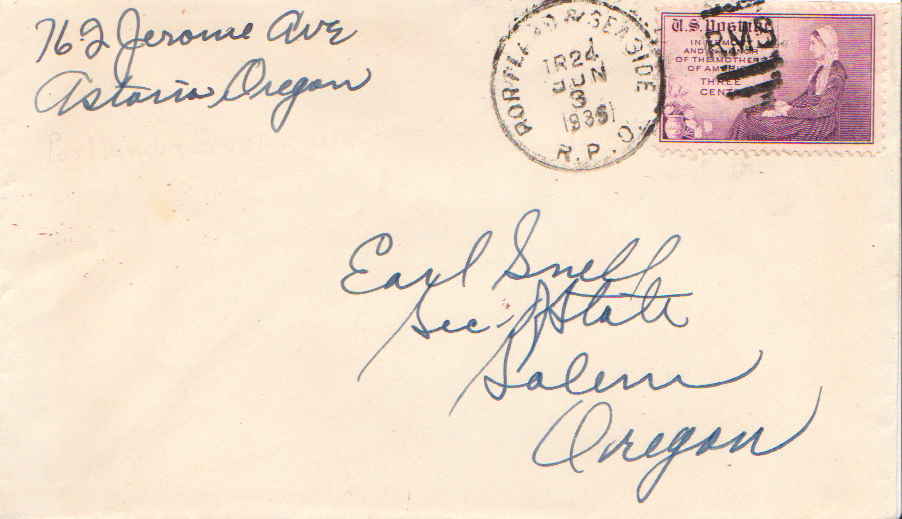 762 Jerome Ave
Astoria, Oregon
PORTLAND & SEASIDE
TR24
JUN
3
1936
R.P.O.
U.S. Postage
IN MEMORY
AND IN HONOR
OF THE MOTHERS
OF AMERICA
THREE
CENTS
RMS
Earl Snell
Sec. of State
Salem
Oregon